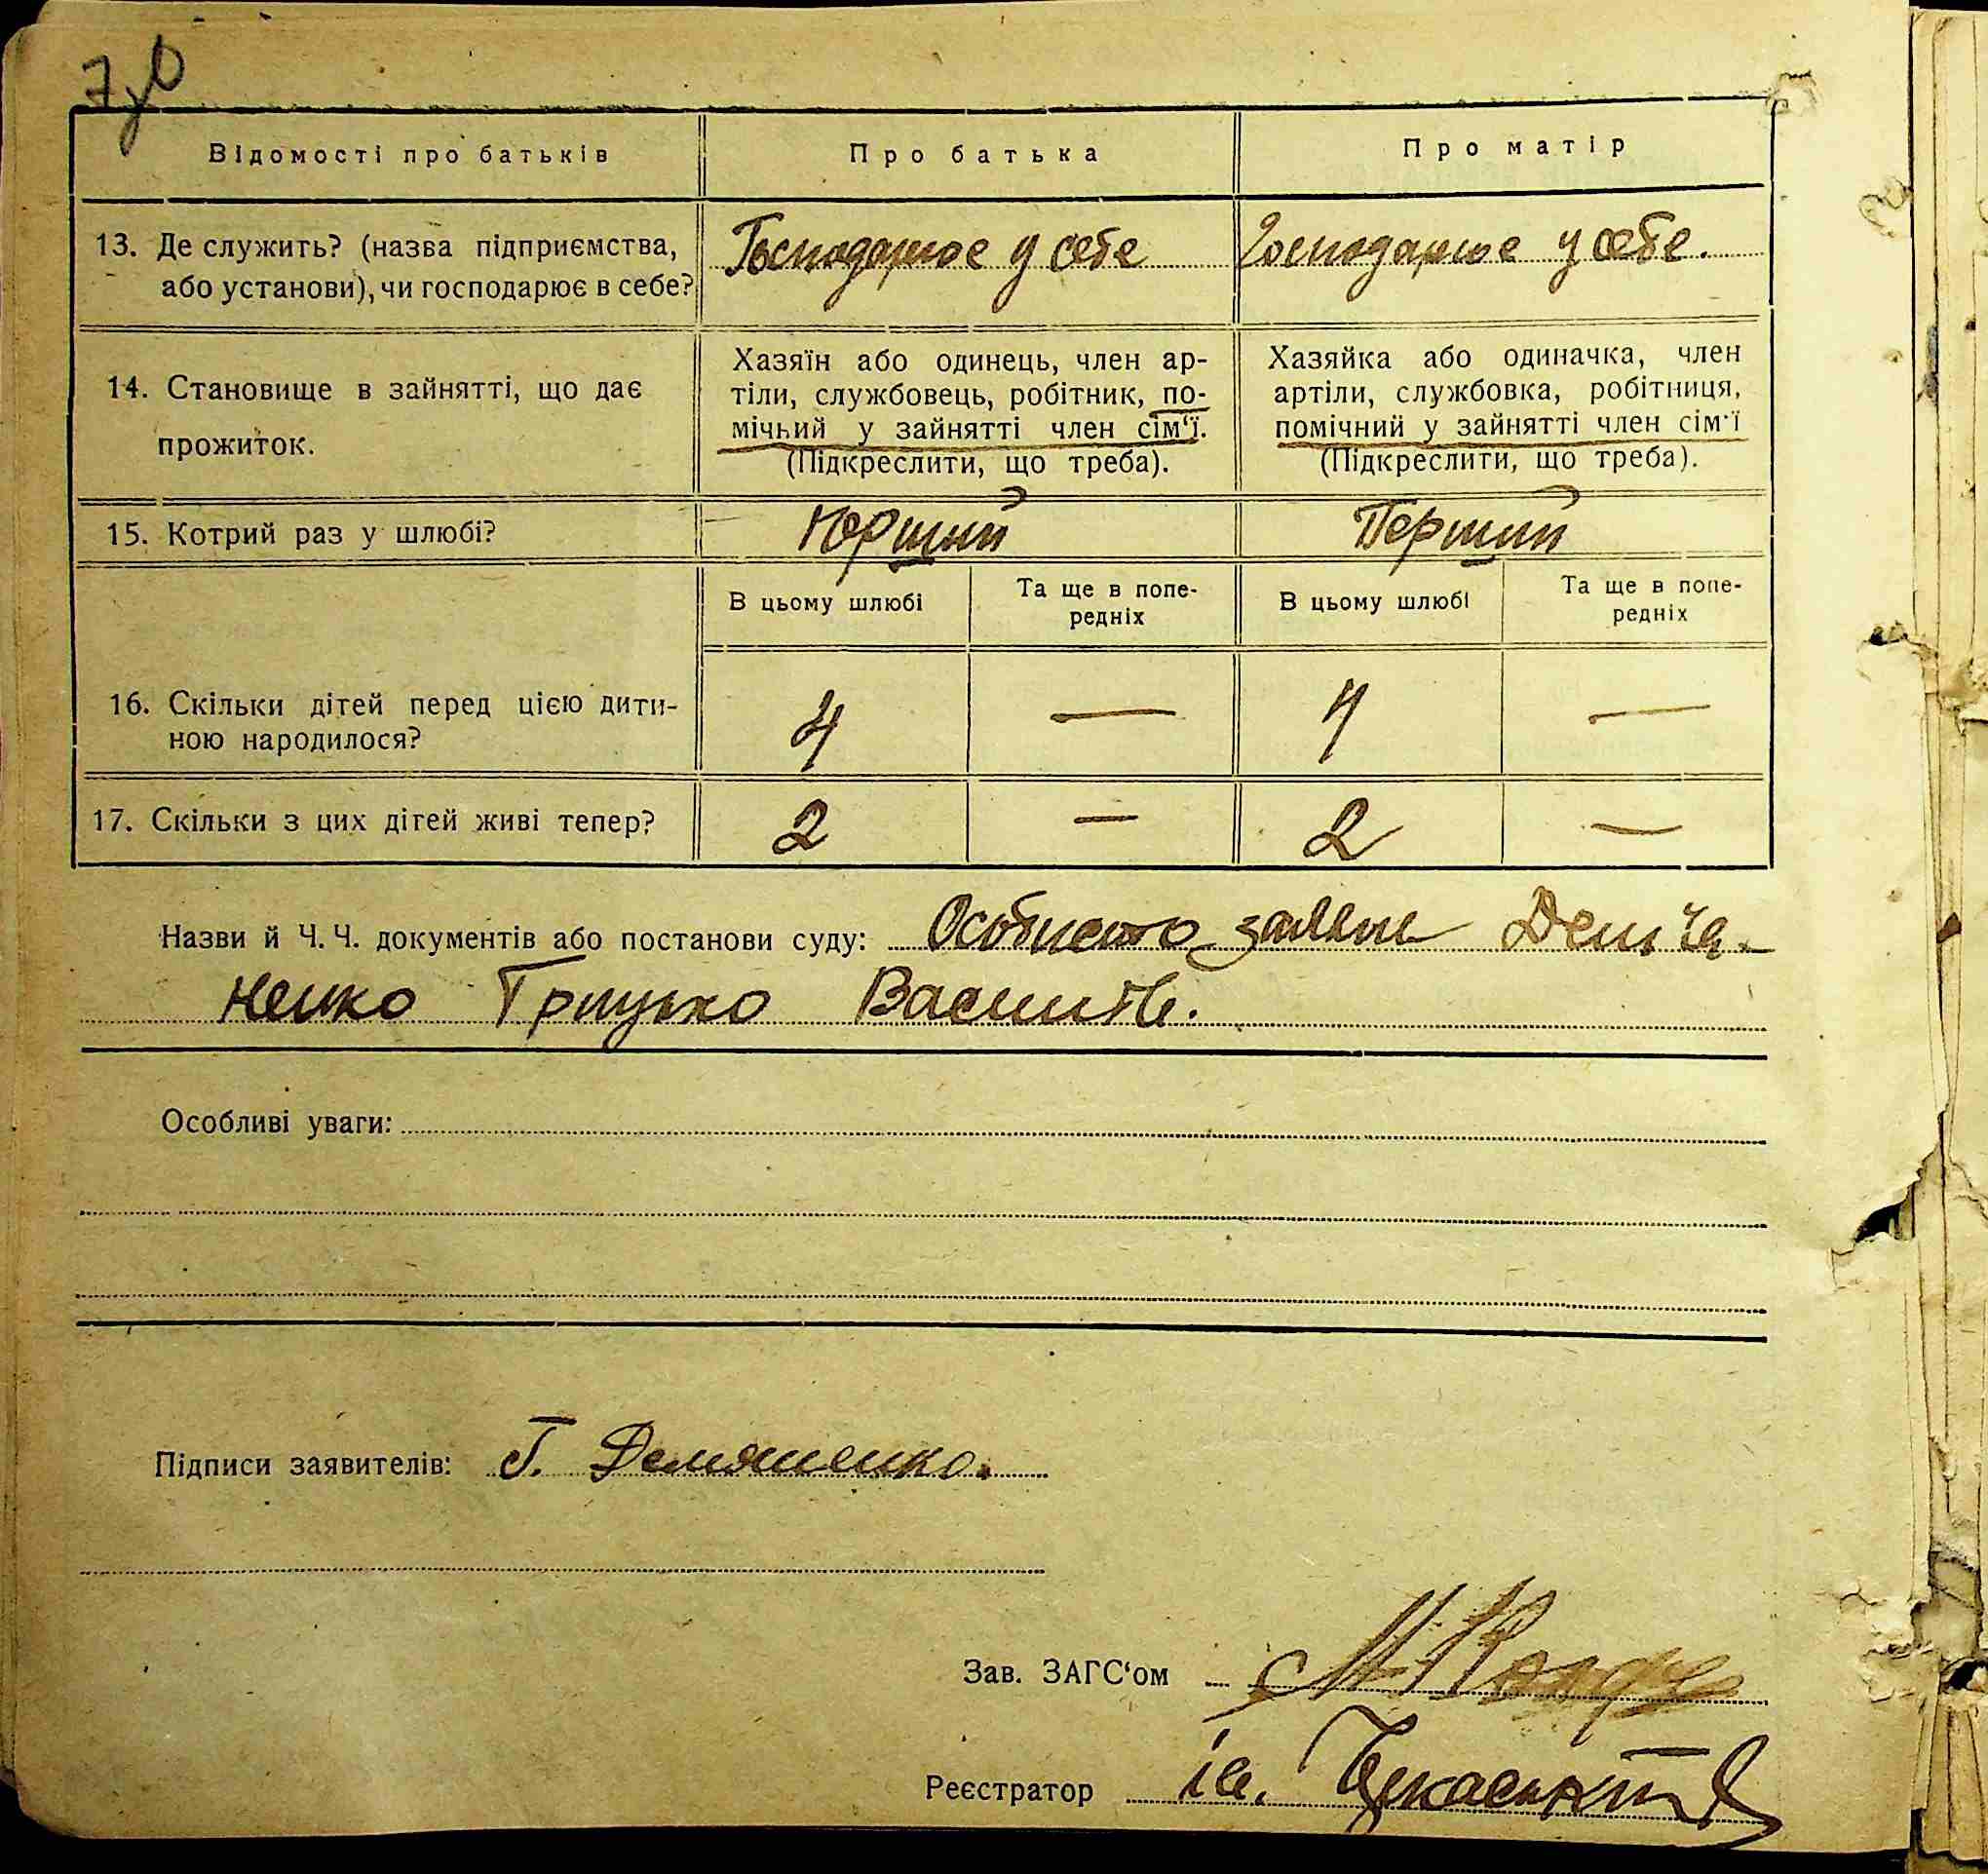 Відомості про батьків
Про батька
Про матір
13. Де служить? (назва підприємства,
або установи), чи господарює в себе?
Господарює у себе
Господарює у себе.
14. Становище в зайнятті, що дає
прожиток.
Хазяїн або одинець, член ар-
тіли, службовець, робітник, по-
мічний у зайнятті член сім'ї.
(Підкреслити, що треба).
Хазяйка або одиначка, член
артіли, службовка, робітниця,
помічний у зайнятті член сім'ї
(Підкреслити, що треба).
15. Котрий раз у шлюбі?
Перший
Перший
В цьому шлюбі
Та ще в попе-
редніх
В цьому шлюбі
Та ще в попе-
редніх
16. Скільки дітей перед цією дити-
ною народилося?
4
—
4
—
17. Скільки з цих дітей живі тепер?
2
—
2
—
Назви й Ч. Ч. документів або постанови суду: Особисто
ненко Грицько Васильв.
Особливі уваги:
Підписи заявителів: Г. Демяненко.
Зав. ЗАГС'ом
Реєстратор